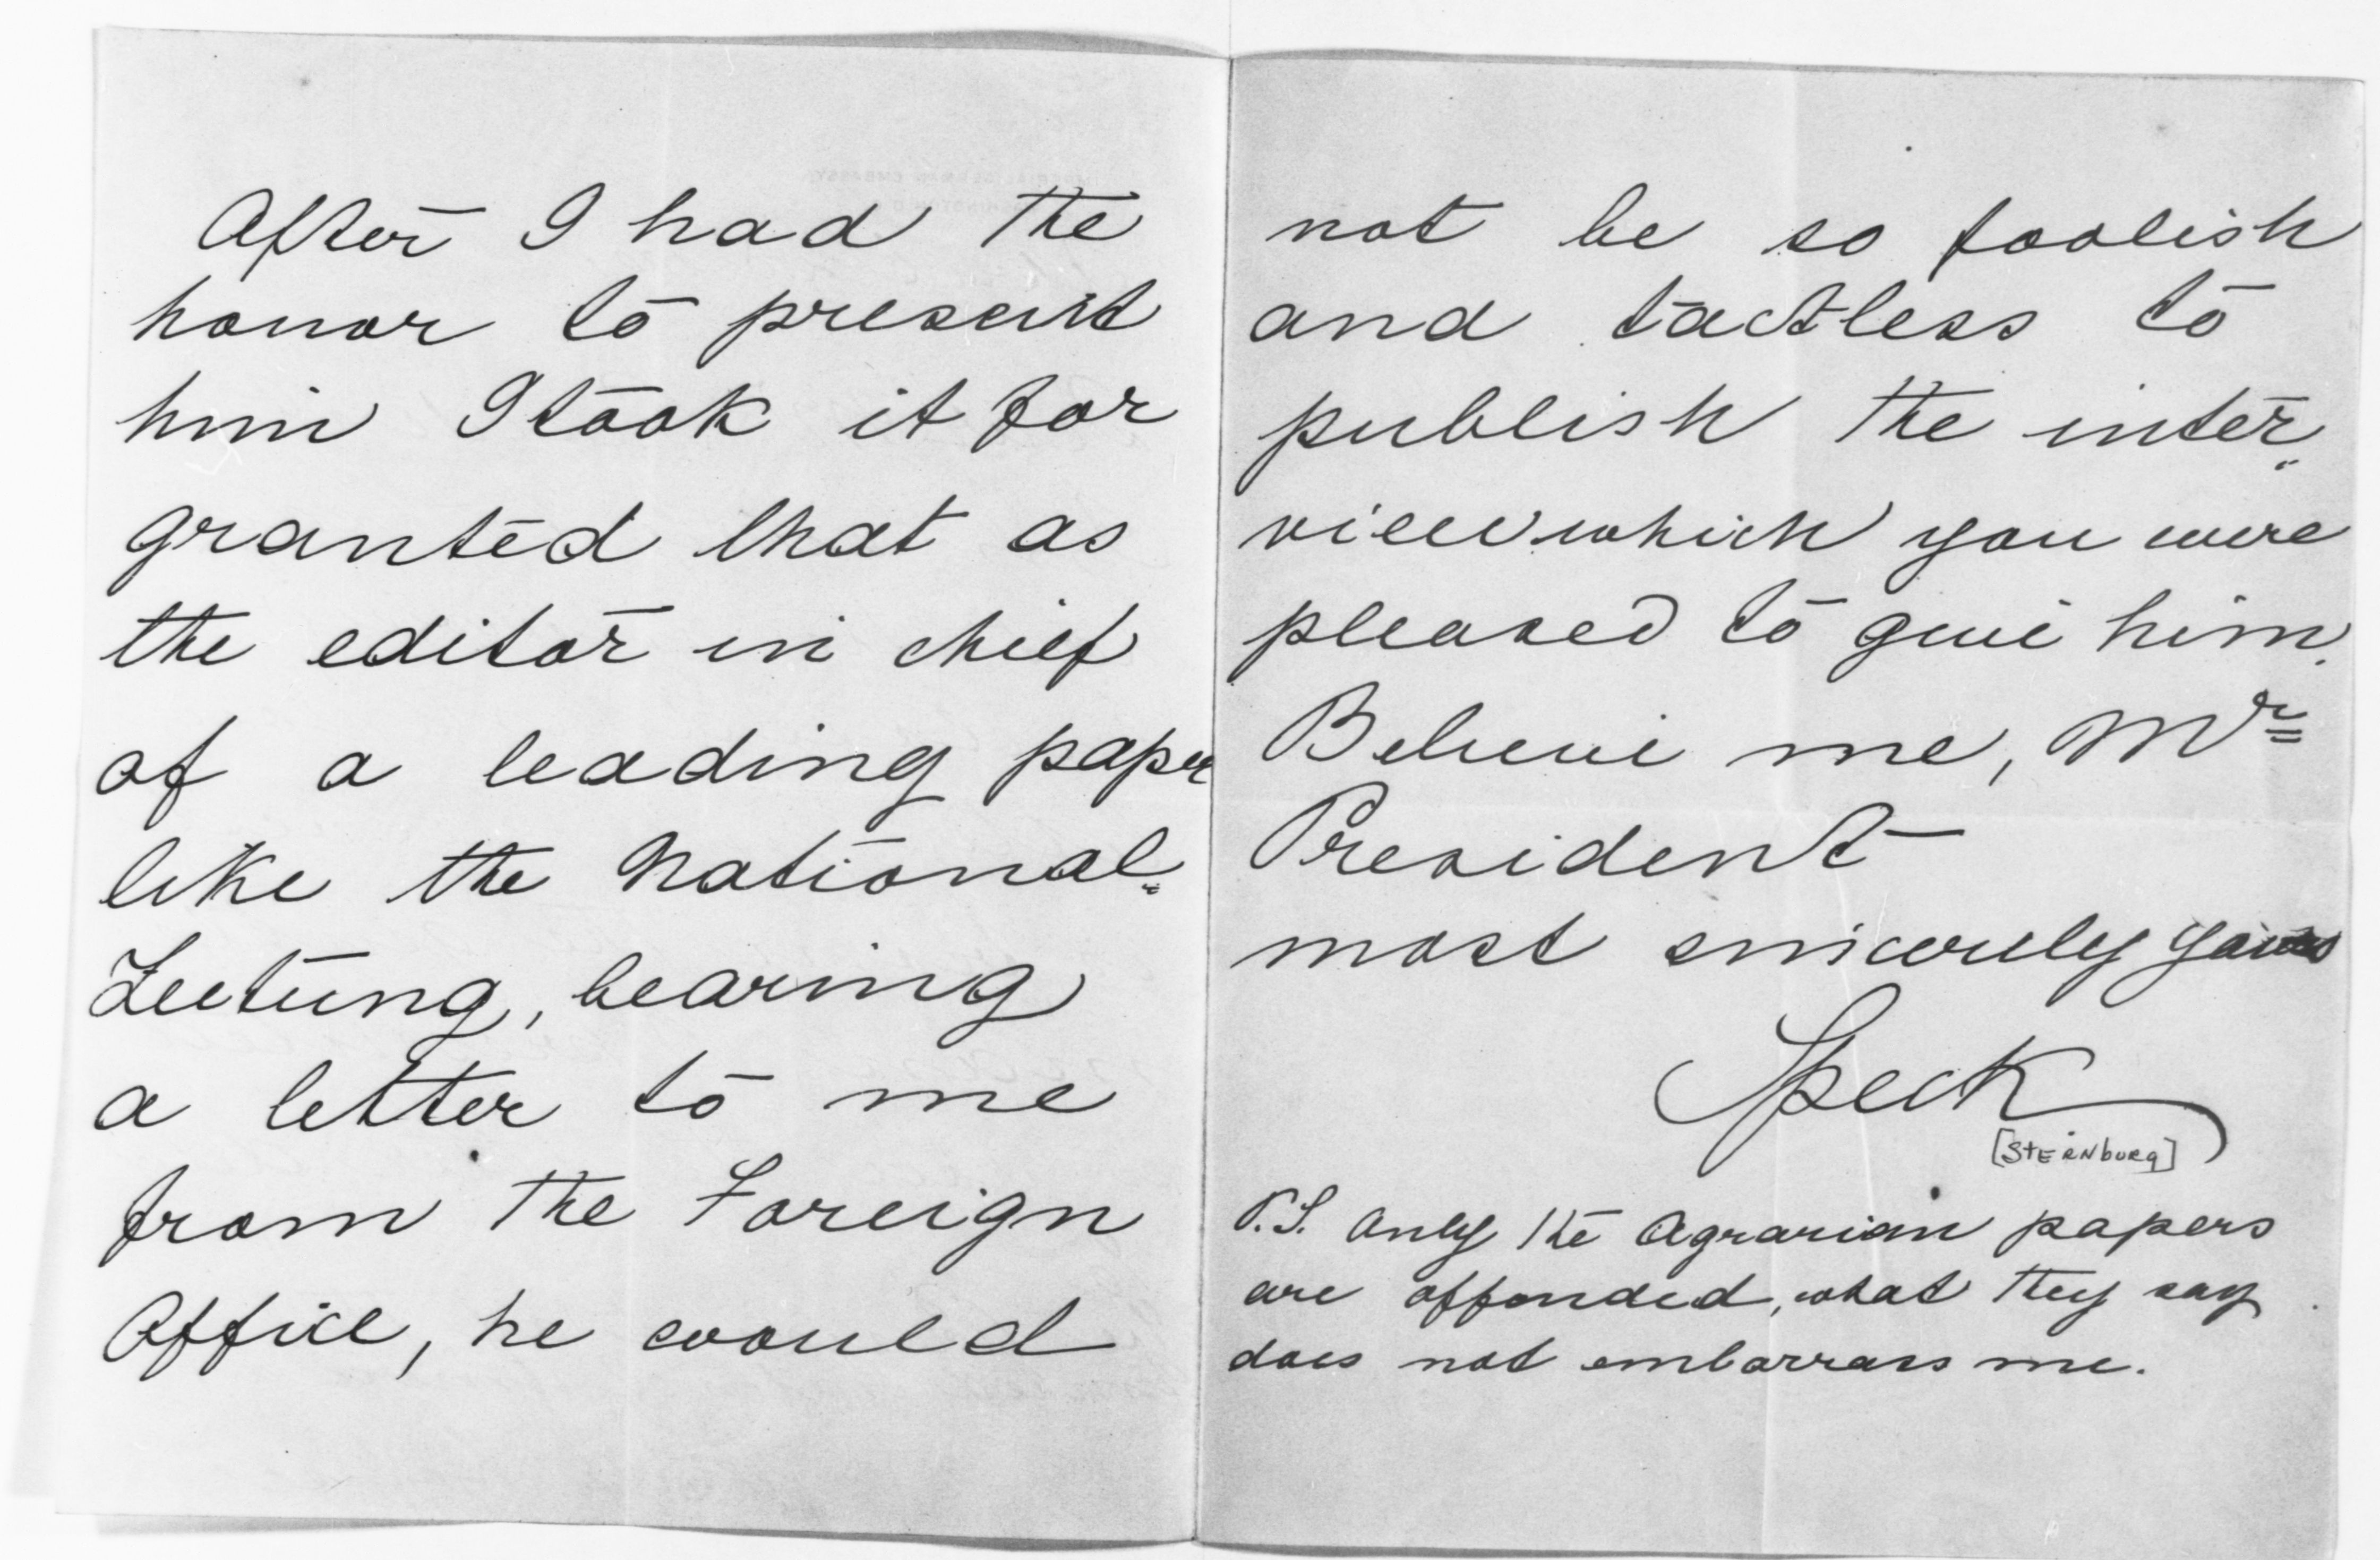 After I had the
honor to present
him I took it for
granted that as
the editor in chief
of a leading paper
like the National-
Zeitung, bearing
a letter to me
from the Foreign
Office, he would
not be so foolish
and tactless to
publish the inter-
view which you were
pleased to give him.
Believe me, Mr=
President
most sincerely yours
Speck
[Sternburg]
P.S. Only the Agrarian papers
are offended, what they say
does not embarrass me.